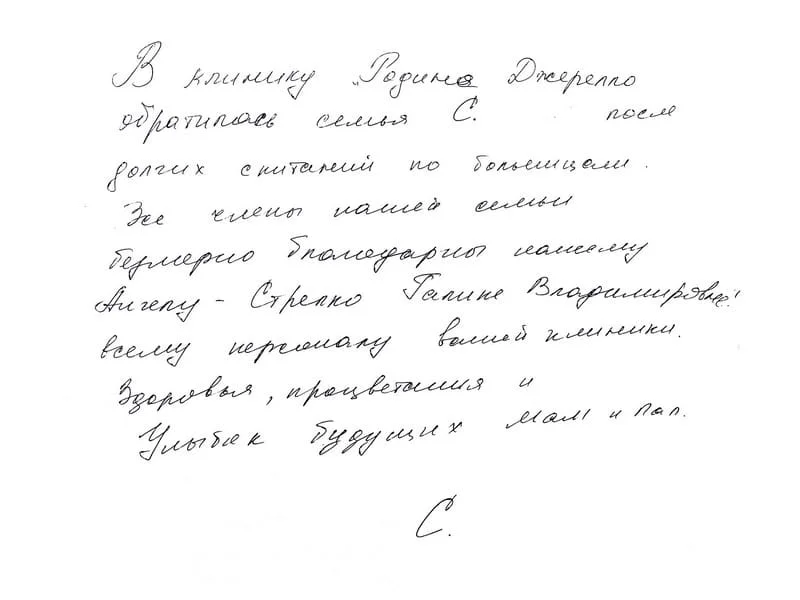 В клинику „Родина Джерелло
обратилась семья С. после
долгих скитаний по больницам.
Все члены нашей семьи
безмерно благодарны нашему
Ангелу - Стрелко Галине Владимировне!
всему персоналу вашей клиники.
Здоровья, процветания и
Улыбок будущих мам и пап.
С.